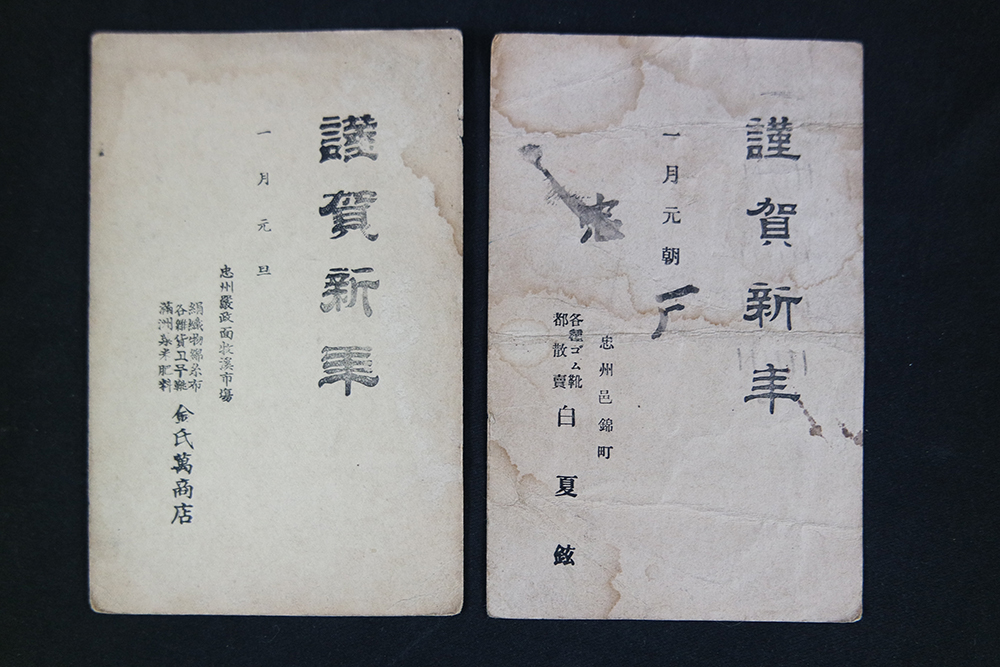 謹賀新年
一月元旦
忠州嚴政面牧溪市場
絹織物綿糸布
各雜貨
滿洲粟米肥料
金氏萬商店
謹賀新年
一月元朝
忠州邑錦町
各種ゴム靴
都散賣
白夏鉉